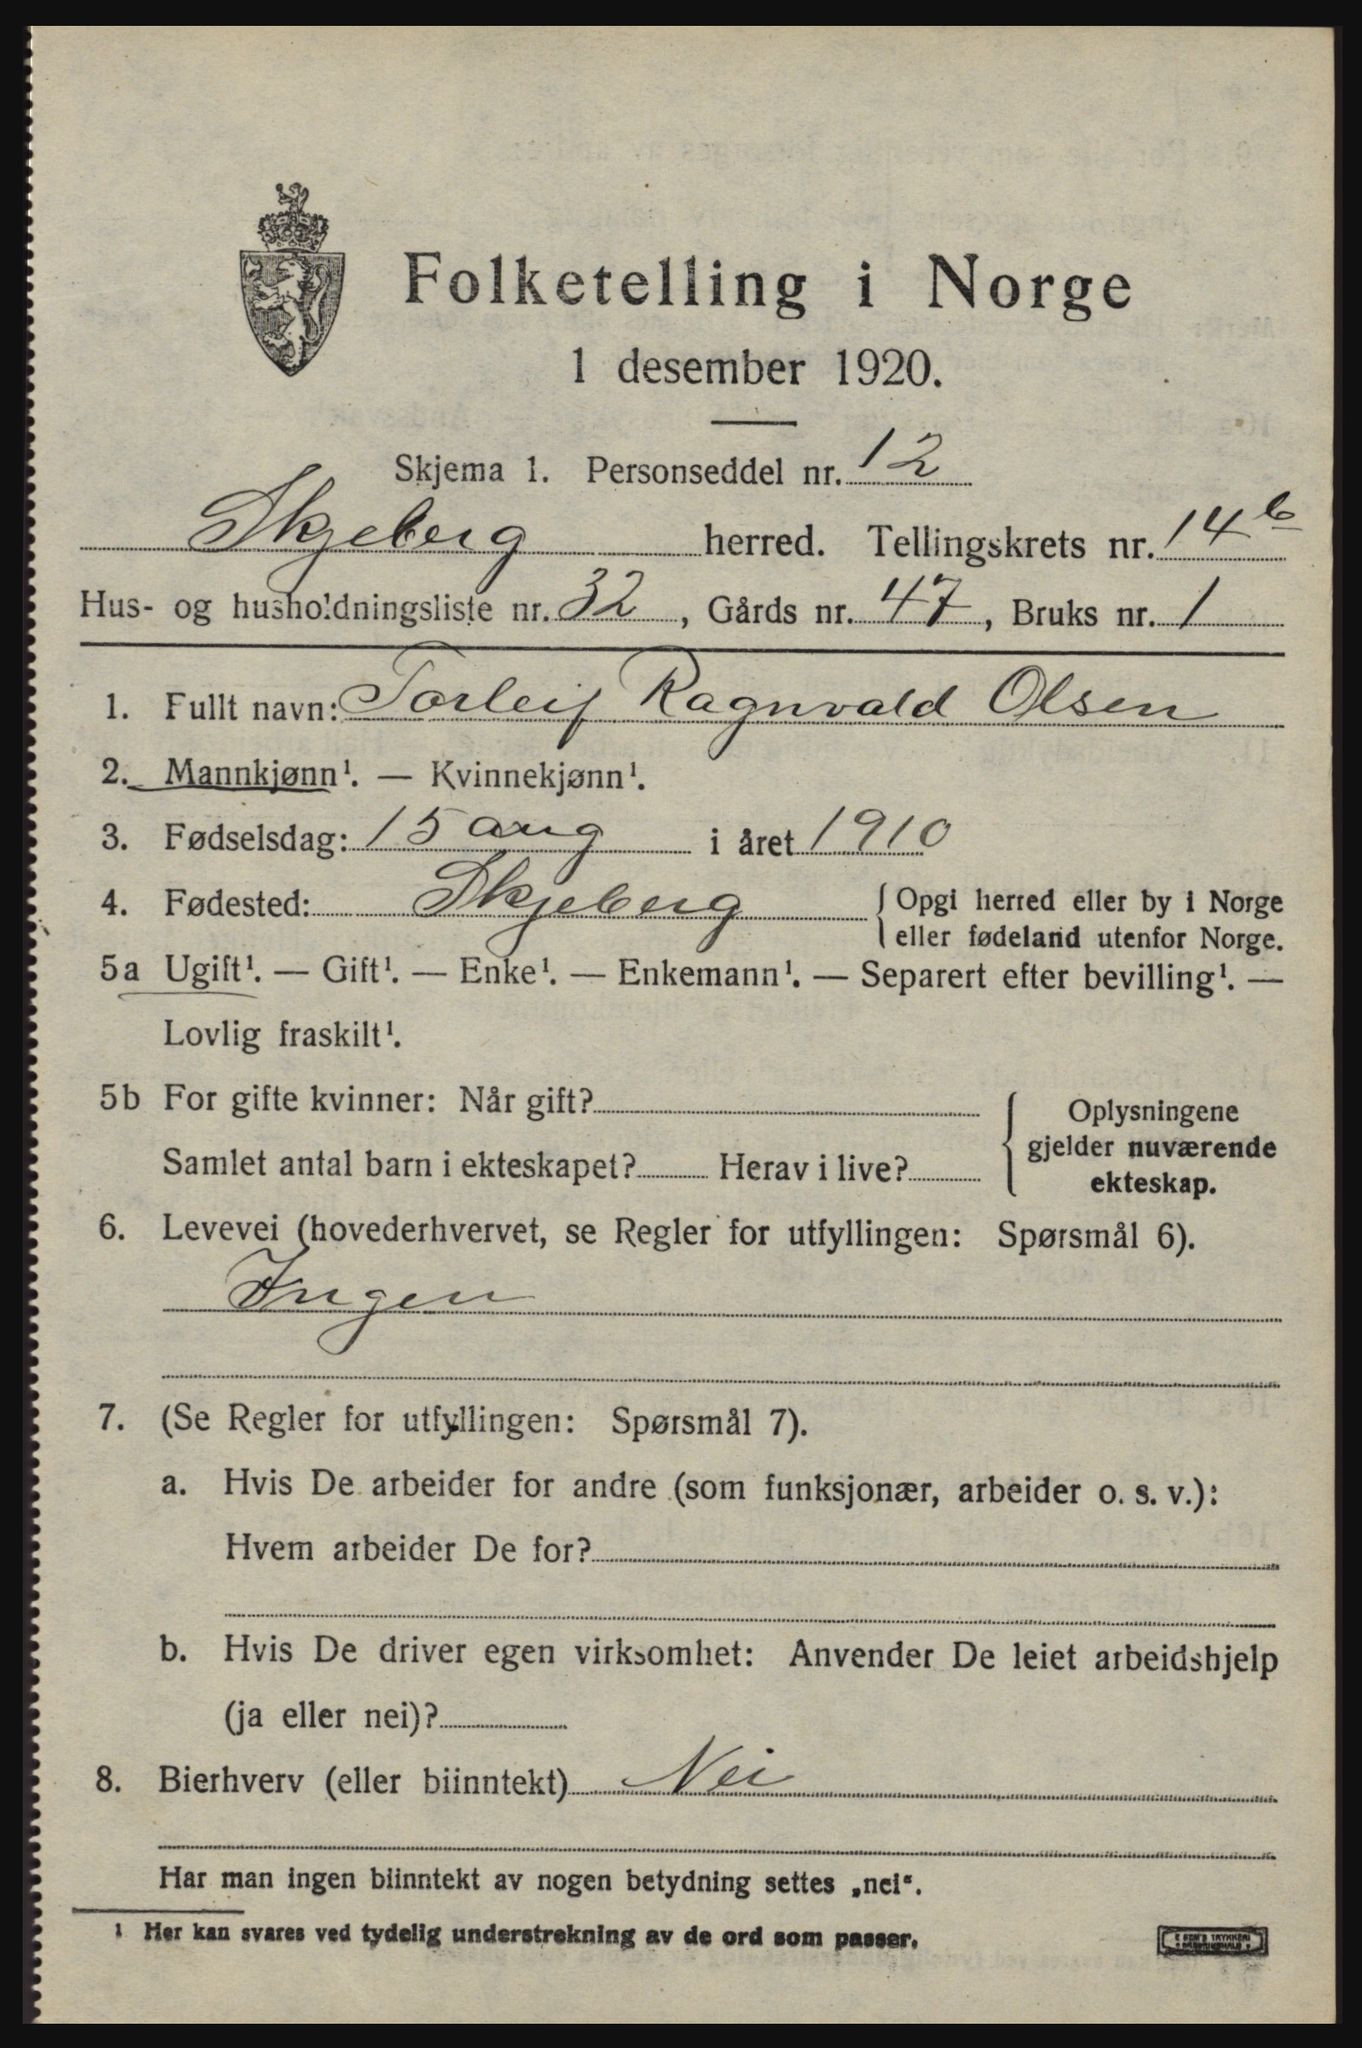 Folketelling i Norge
1 desember 1920.
Skjema 1. Personseddel nr. 12
Skjeberg herred. Tellingskrets nr. 14b
Hus- og husholdningsliste nr. 32, Gårds nr. 47, Bruks nr. 1
1. Fullt navn: Torleif Ragnvald Olsen
2. Mannkjønn¹. — Kvinnekjønn¹.
3. Fødselsdag: 15 aug i året 1910
4. Fødested: Skjeberg Opgi herred eller by i Norge
eller fødeland utenfor Norge.
5a Ugift¹. — Gift¹. — Enke¹. — Enkemann¹. — Separert efter bevilling¹. —
Lovlig fraskilt¹.
5b For gifte kvinner: Når gift?
Samlet antal barn i ekteskapet? Herav i live?
Oplysningene
gjelder nuværende
ekteskap.
6. Levevei (hovederhvervet, se Regler for utfyllingen: Spørsmål 6).
Ingen
7. (Se Regler for utfyllingen: Spørsmål 7).
a. Hvis De arbeider for andre (som funksjonær, arbeider o. s. v.):
Hvem arbeider De for?
b. Hvis De driver egen virksomhet: Anvender De leiet arbeidshjelp
(ja eller nei)?
8. Bierhverv (eller biinntekt) Nei
Har man ingen biinntekt av nogen betydning settes „nei“.
¹ Her kan svares ved tydelig understrekning av de ord som passer.